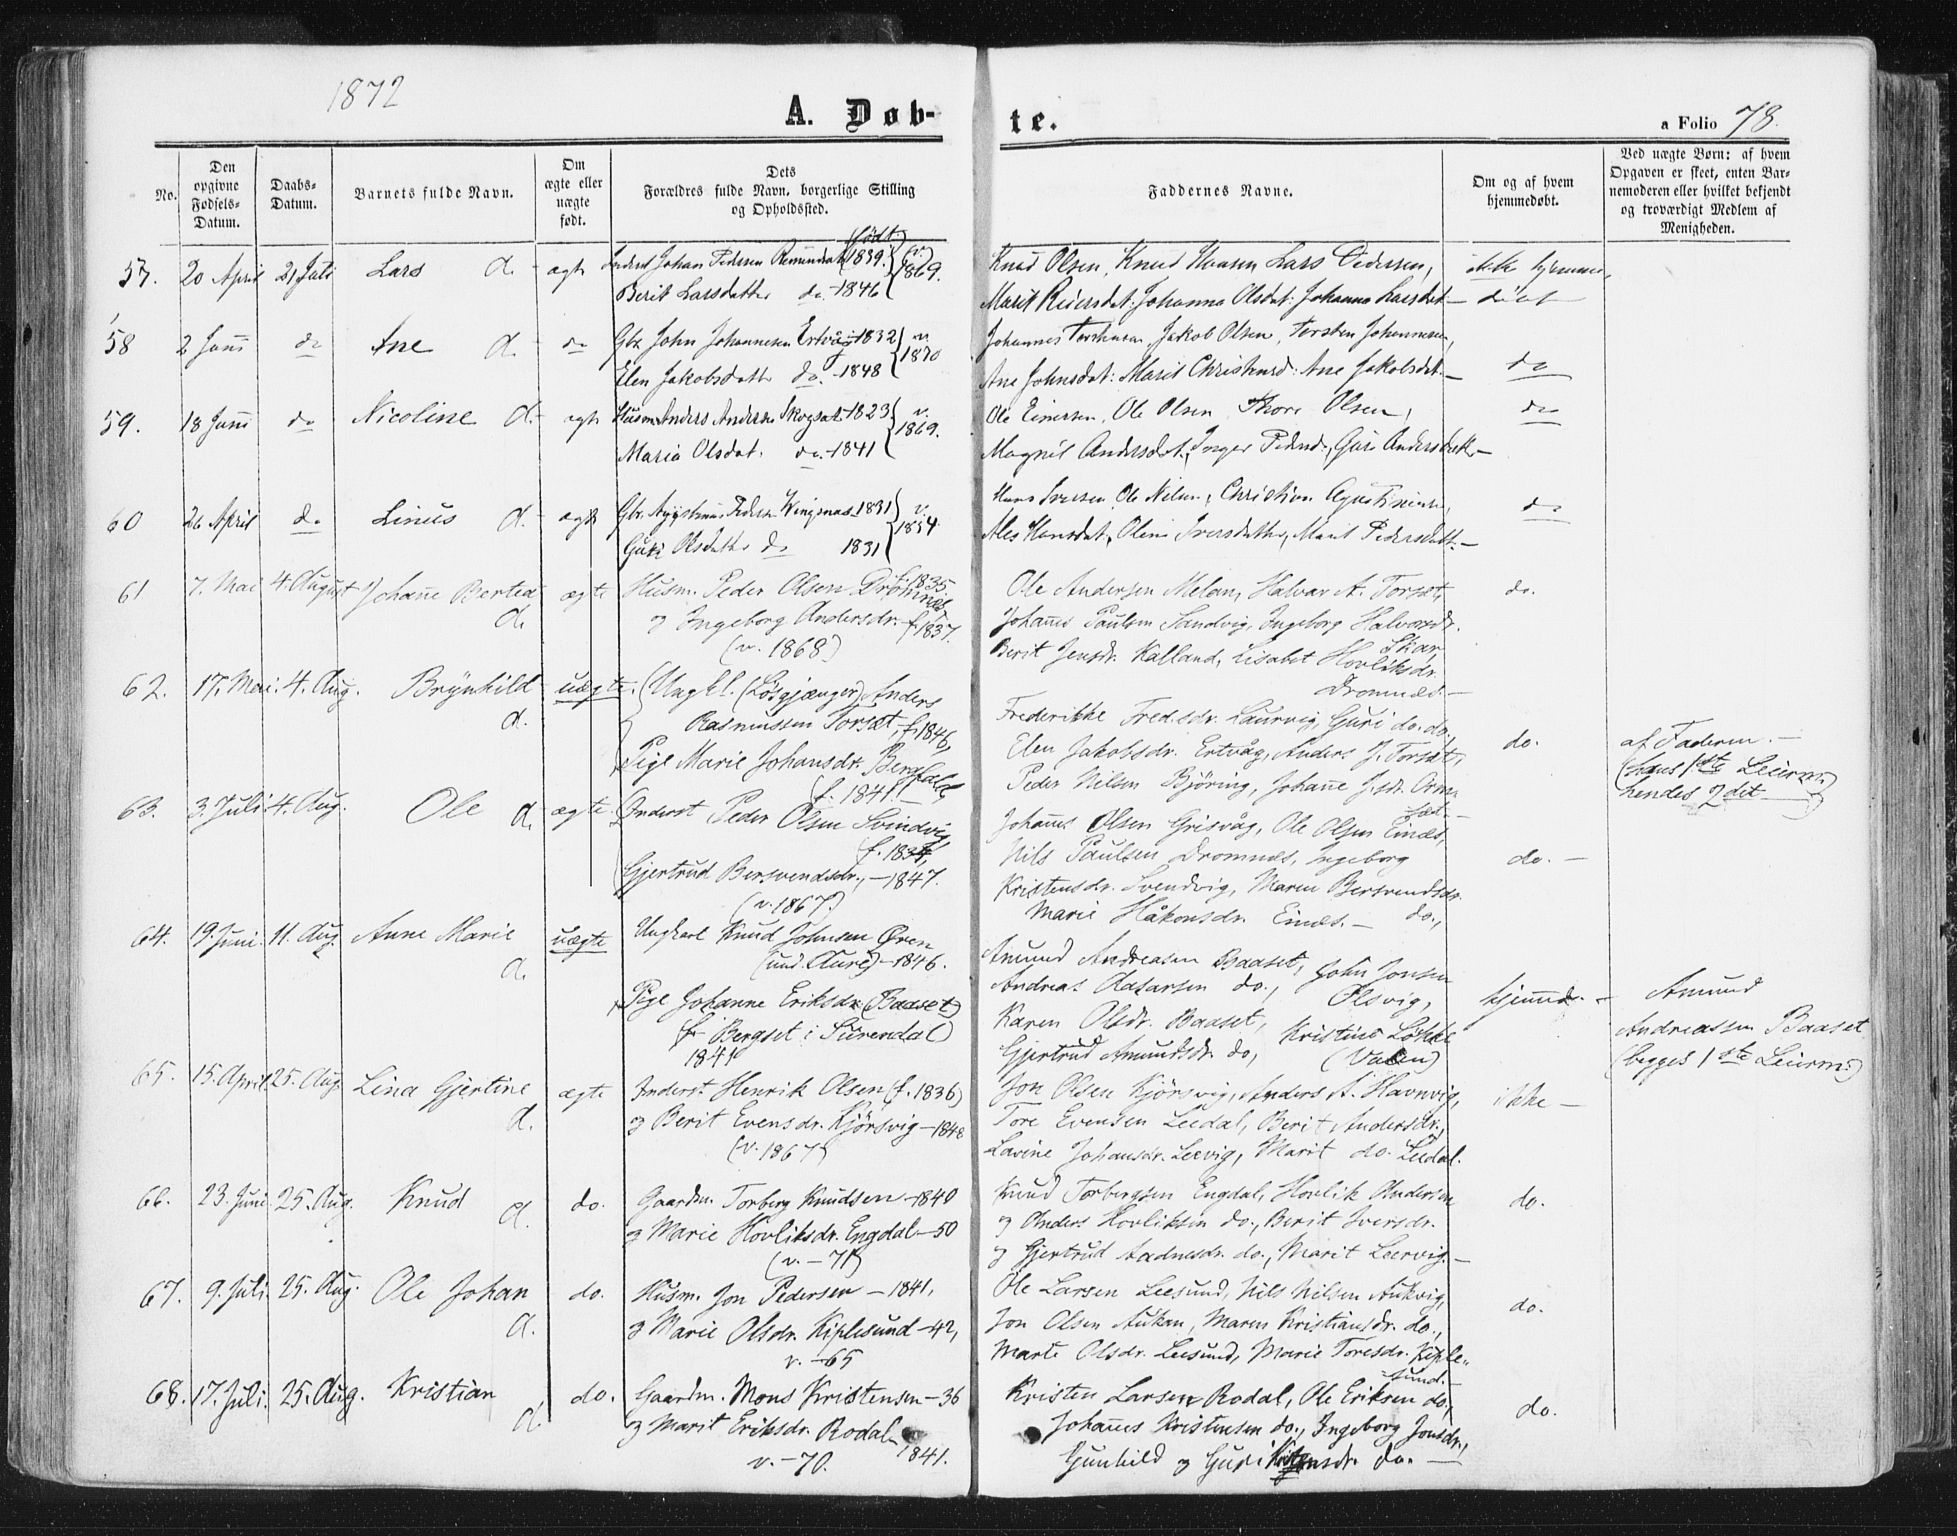 1872
A. Døb-
te.
a Folio 78.
No.
Den opgivne Fødsels-Datum.
Daabs-Datum.
Barnets fulde Navn.
Om ægte eller uægte født.
Dets Forældres fulde Navn, borgerlige Stilling og Opholdssted.
Faddernes Navne.
Om og af hvem hjemmedøbt.
Ved uægte Børn: af hvem Opgaven er skeet, enten Barnemoderen eller hvilket bekjendt og troværdigt Medlem af Menigheden.
57. 20 April 21 Juli Lars d. ægte Inderst Johan Pedersen (født 1839.) v. 1869.
Berit Larsdatter do 1846
Knud Olsen, Knud Hansen Lars Pedersen,
Marit Reiersdat: Johanna Olsdat: Johanna Larsdat
ikke hjemmedøbt
58 2 Juni do Ane d. do Gbr John Johannesen Ertvåg 1832 v. 1870
Elen Jakobsdatter do. 1848
Johannes Torstensen, Jakob Olsen, Torsten Johannesen,
Ane Johnsdat: Marit Christensd: Ane Jakobsdat.
do
59. 18 Juni do Nicoline d. ægte Husm. Anders Andersen Skogsæt 1823. v. 1869.
Maria Olsdat. do. 1841
Ole Einersen, Ole Olsen, Thore Olsen,
Magnil Andersdat., Inger Pedersd., Guri Andersdatt.
do
60 26 April do Linus d. ægte Gbr. Agustinus Pedersen Kingsnæs 1831 v. 1854
Guri Olsdatter do 1831
Hans Iversen, Ole Nilsen, Christian Agustinusen,
Ales Hansdat, Oline Iversdatter, Marit Pedersdatt.
do
61 7. Mai 4. August Johanne Bertea d. ægte Husm. Peder Olsen Drømnæs f. 1835.
og Ingeborg Andersdr. f. 1837.
(v. 1868.)
Ole Andersen Meland, Halvar A. Torsæt,
Johannes Paulsen Sandvig, Ingeborg Halvorsdr. Skar,
Berit Jensdr. Kalland, Lisabet Hovliksdr. Dromnæs.
do.
62. 17. Mai. 4. Aug. Brynhild d. uægte. Ungkl. (Løsgjænger) Anders
Rasmussen Torsæt, f. 1846,
Pige Marie Johansdr. Bergfald,
f. 1841.
Frederikke Fredsdr. Laurvig, Guri do. do,
Elen Jakobsdr. Ertvåg, Anders J. Torsæt,
Peder Nilsen Björing, Johanne Jsdr. Ormsæt.
do.
af Faderen.
(hans 1ste Leierm.
hendes 2det)
63. 3. Juli. 4. Aug. Ole d. ægte. Inderst Peder Olsen Svindvig,
f. 1834,
Gjertrud Bersvendsdr., 1847.
(v. 1867.)
Johannes Olsen Grisvåg, Ole Olsen Einæs,
Nils Paulsen Dromnæs, Ingeborg
Kristensdr. Svendvig, Maren Bersvendsdr. do.,
Marie Håkonsdr. Einæs.
do.
64. 19. Juni. 11. Aug. Anne Marie d. uægte Ungkarl Knud Johnsen Øren
(und. Aure) 1846.
Pige Johanne Eriksdr (Baaset)
f Bergset i Surendal
1841
Amund Andreasen Baaset, John Jonsen Olsvig,
Andreas Lasarsen do.,
Karen Olsdr. Baaset, Kristine Løkke (Valen)
Gjertrud Amundsdr. do,
hjemmd.
Amund
Andreassen Baaset
(begges 1ste Leierm.)
65. 15. April 25. Aug. Lina Gjertine d. ægte Inderst. Henrik Olsen (f. 1836)
og Berit Evensdr. Kjörsvig 1848
(v. 1867)
Jon Olsen Kjörsvig, Anders A. Havnvig,
Tore Evensen Leedal, Berit Andersdr.,
Lavine Johansdr. Leevig, Marit do. Leedal.
ikke
66. 23. Juni 25. Aug. Knud d. do. Gaardm. Torberg Knudsen 1840
og Marie Hovliksdr. Engdal 50
(v. 71)
Knud Torbergsen Engdal, Hovlik Andersen
og Anders Hovliksen do., Berit Iversdr.
og Gjertrud Aadnesdr. do., Marit Leervig.
do.
67. 9. Juli. 25. Aug. Ole Johan d. do. Husm. Jon Pedersen 1841,
og Marie Olsdr. Kiplesund 42,
v. 65
Ole Larsen Leesund, Nils Nilsen Aukvig,
Jon Olsen Aukan, Maren Kristiansdr. do.,
Marte Olsdr. Leesund, Marie Toresdr. Kiplesund.
do.
68. 17. Juli. 25. Aug. Kristian d. do. Gaardm. Mons Kristensen 36
og Marit Eriksdr. Rodal 1841.
v. 70.
Kristen Larsen Rodal, Ole Eriksen do.,
Johannes Kristensen do., Ingeborg Jonsdr.,
Gunhild og Guri Kristensdr. do.
do.